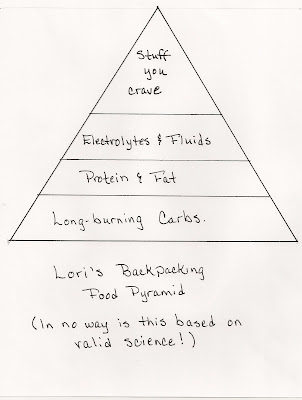 Stuff
you
crave
Electrolytes & Fluids
Protein & Fat
Long-burning Carbs.
Lori's Backpacking
Food Pyramid
(In no way is this based on
valid science!)